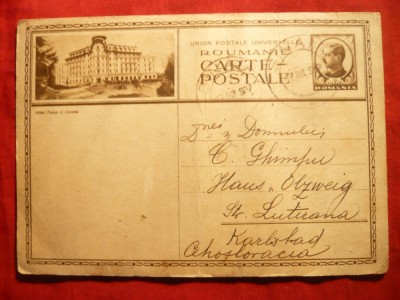 UNION POSTALE UNIVERSELLE
ROUMANIE
CARTE-
POSTALE
ROMANIA
Dnei și Domnului
C. Ghimpu
Haus "Obzweig
Str. Luterana
Karlsbad
Cehoslovacia